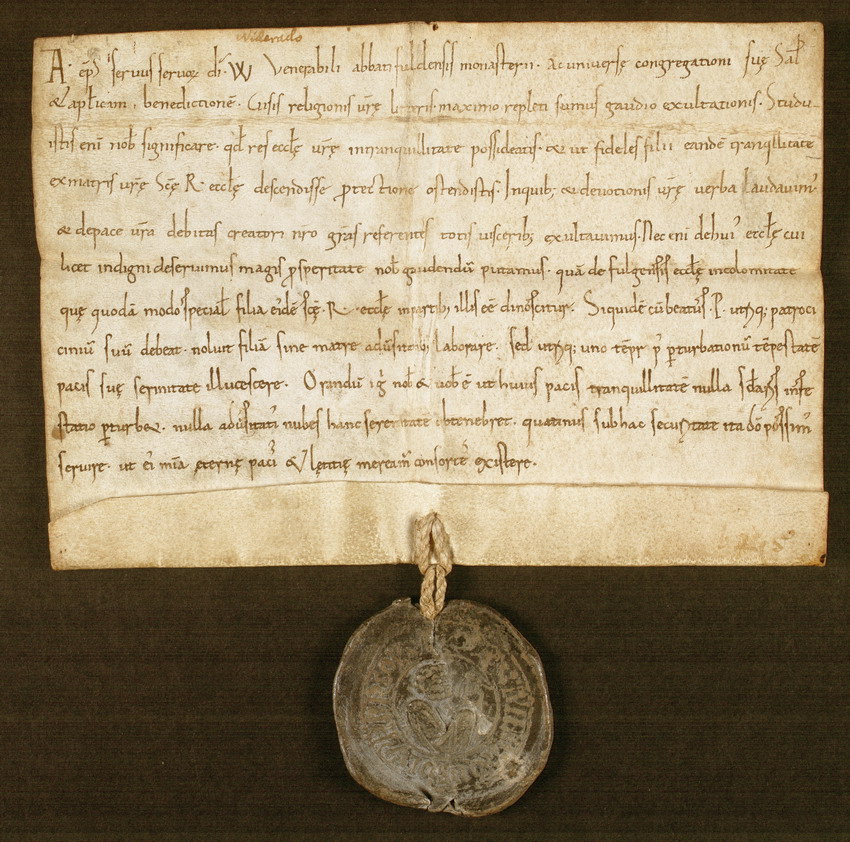 Widerado
A· ep̄s servus servoꝝ dī· W venerabili abbati fuldensis monasterii· Ac universę congregationi suę Sal̄
& apl̄icam̄ benedictionē· Visis religionis vr̄ę litteris· maximo repleti sumus gaudio exultationis· Studu-
istis eni nob̄ significare· qd̄ res eccl̄ę vr̄ę in tranquillitate possideatis· & ut fideles filii eandē tranq̇llitatē
ex matris vr̄ę Scę̄ R· eccl̄ę descendisse protectione ostendistis· In quib; & devotionis vr̄ę verba laudavim᾽
& de pace vr̄a debitas creatori nr̄o gr̄as referentes totis visceribꝫ exultavimus· Nec eni de huī᾽ eccl̄ę cui
licet indigni deservimus magis ꝓsperitate nob̄ gaudendū putamus· quā de fulgensis eccl̄ę incolomitate
quę quodā modo special̄ filia ei᾽dē scę̄· R· eccl̄ę in partib; illis eē dinoscitur· Siquidē cū beatus· P· utriq; patroci
ciniū suū debeat· noluit filiā sine matre advsitatib; laborare· sed utriq; uno tēpr̄ p᾽ ꝑturbationū tēpestatē
pacis suę serinitatē illucescere· Orandū igr̄ nob̄ & vob̄ ē ut huius pacis tranquillitatē nulla scd̄aris infe
statio ꝑturbet· nulla advsitatis nubes hanc serenitatē obtenebret· quatinus sub hac securitate ita dō possim᾽
servire· ut ei᾽ mīa ęternę paci᾽ & lętitię mereamr̄ consortē existere·